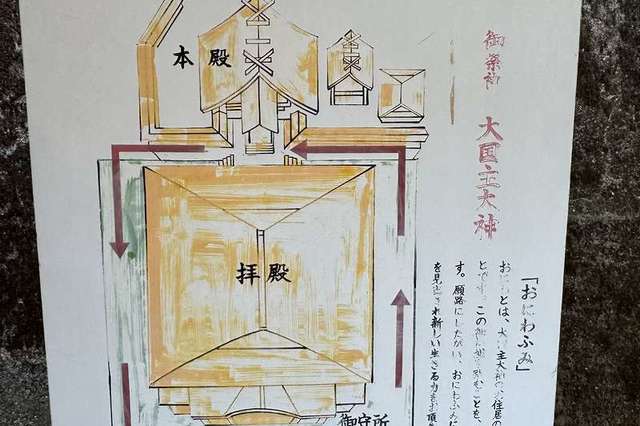 本殿
拝殿
御守所
御祭神
大国主大神
「おにわふみ」
おにわとは、大国主大神の御住居の
とです。この御
むことを、
す。順路にしたがい、おにわふみ
を見出され新しい生きる力をお頂